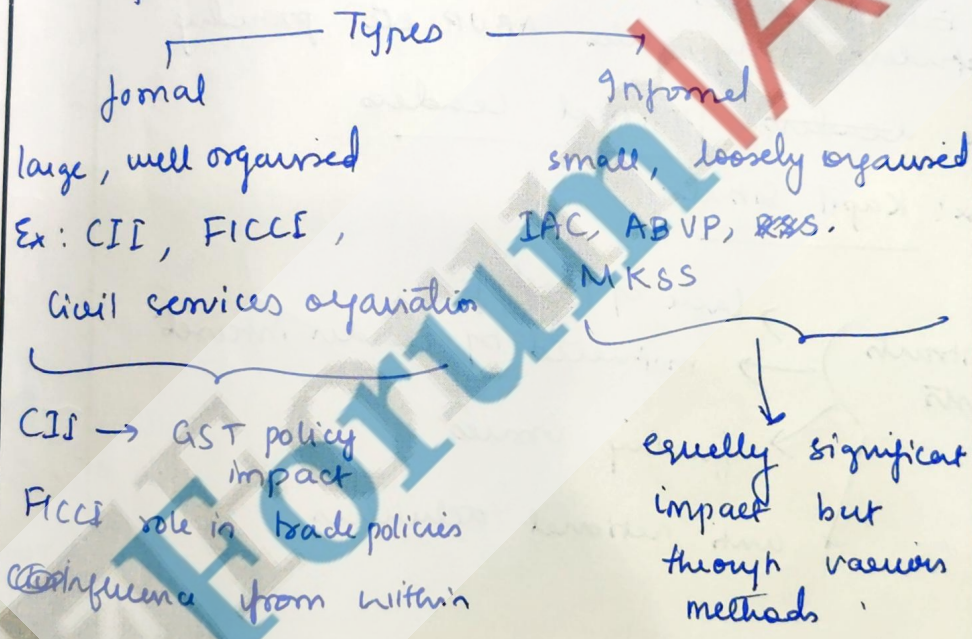 Types
formal
large, well organised
Ex: CII, FICCI,
Civil services organisation
CII → GST policy
impact
FICCI role in trade policies
influence from within
Informal
small, loosely organised
IAC, ABVP,
MKSS
equally significant
impact but
through various
methods.
Forum IA